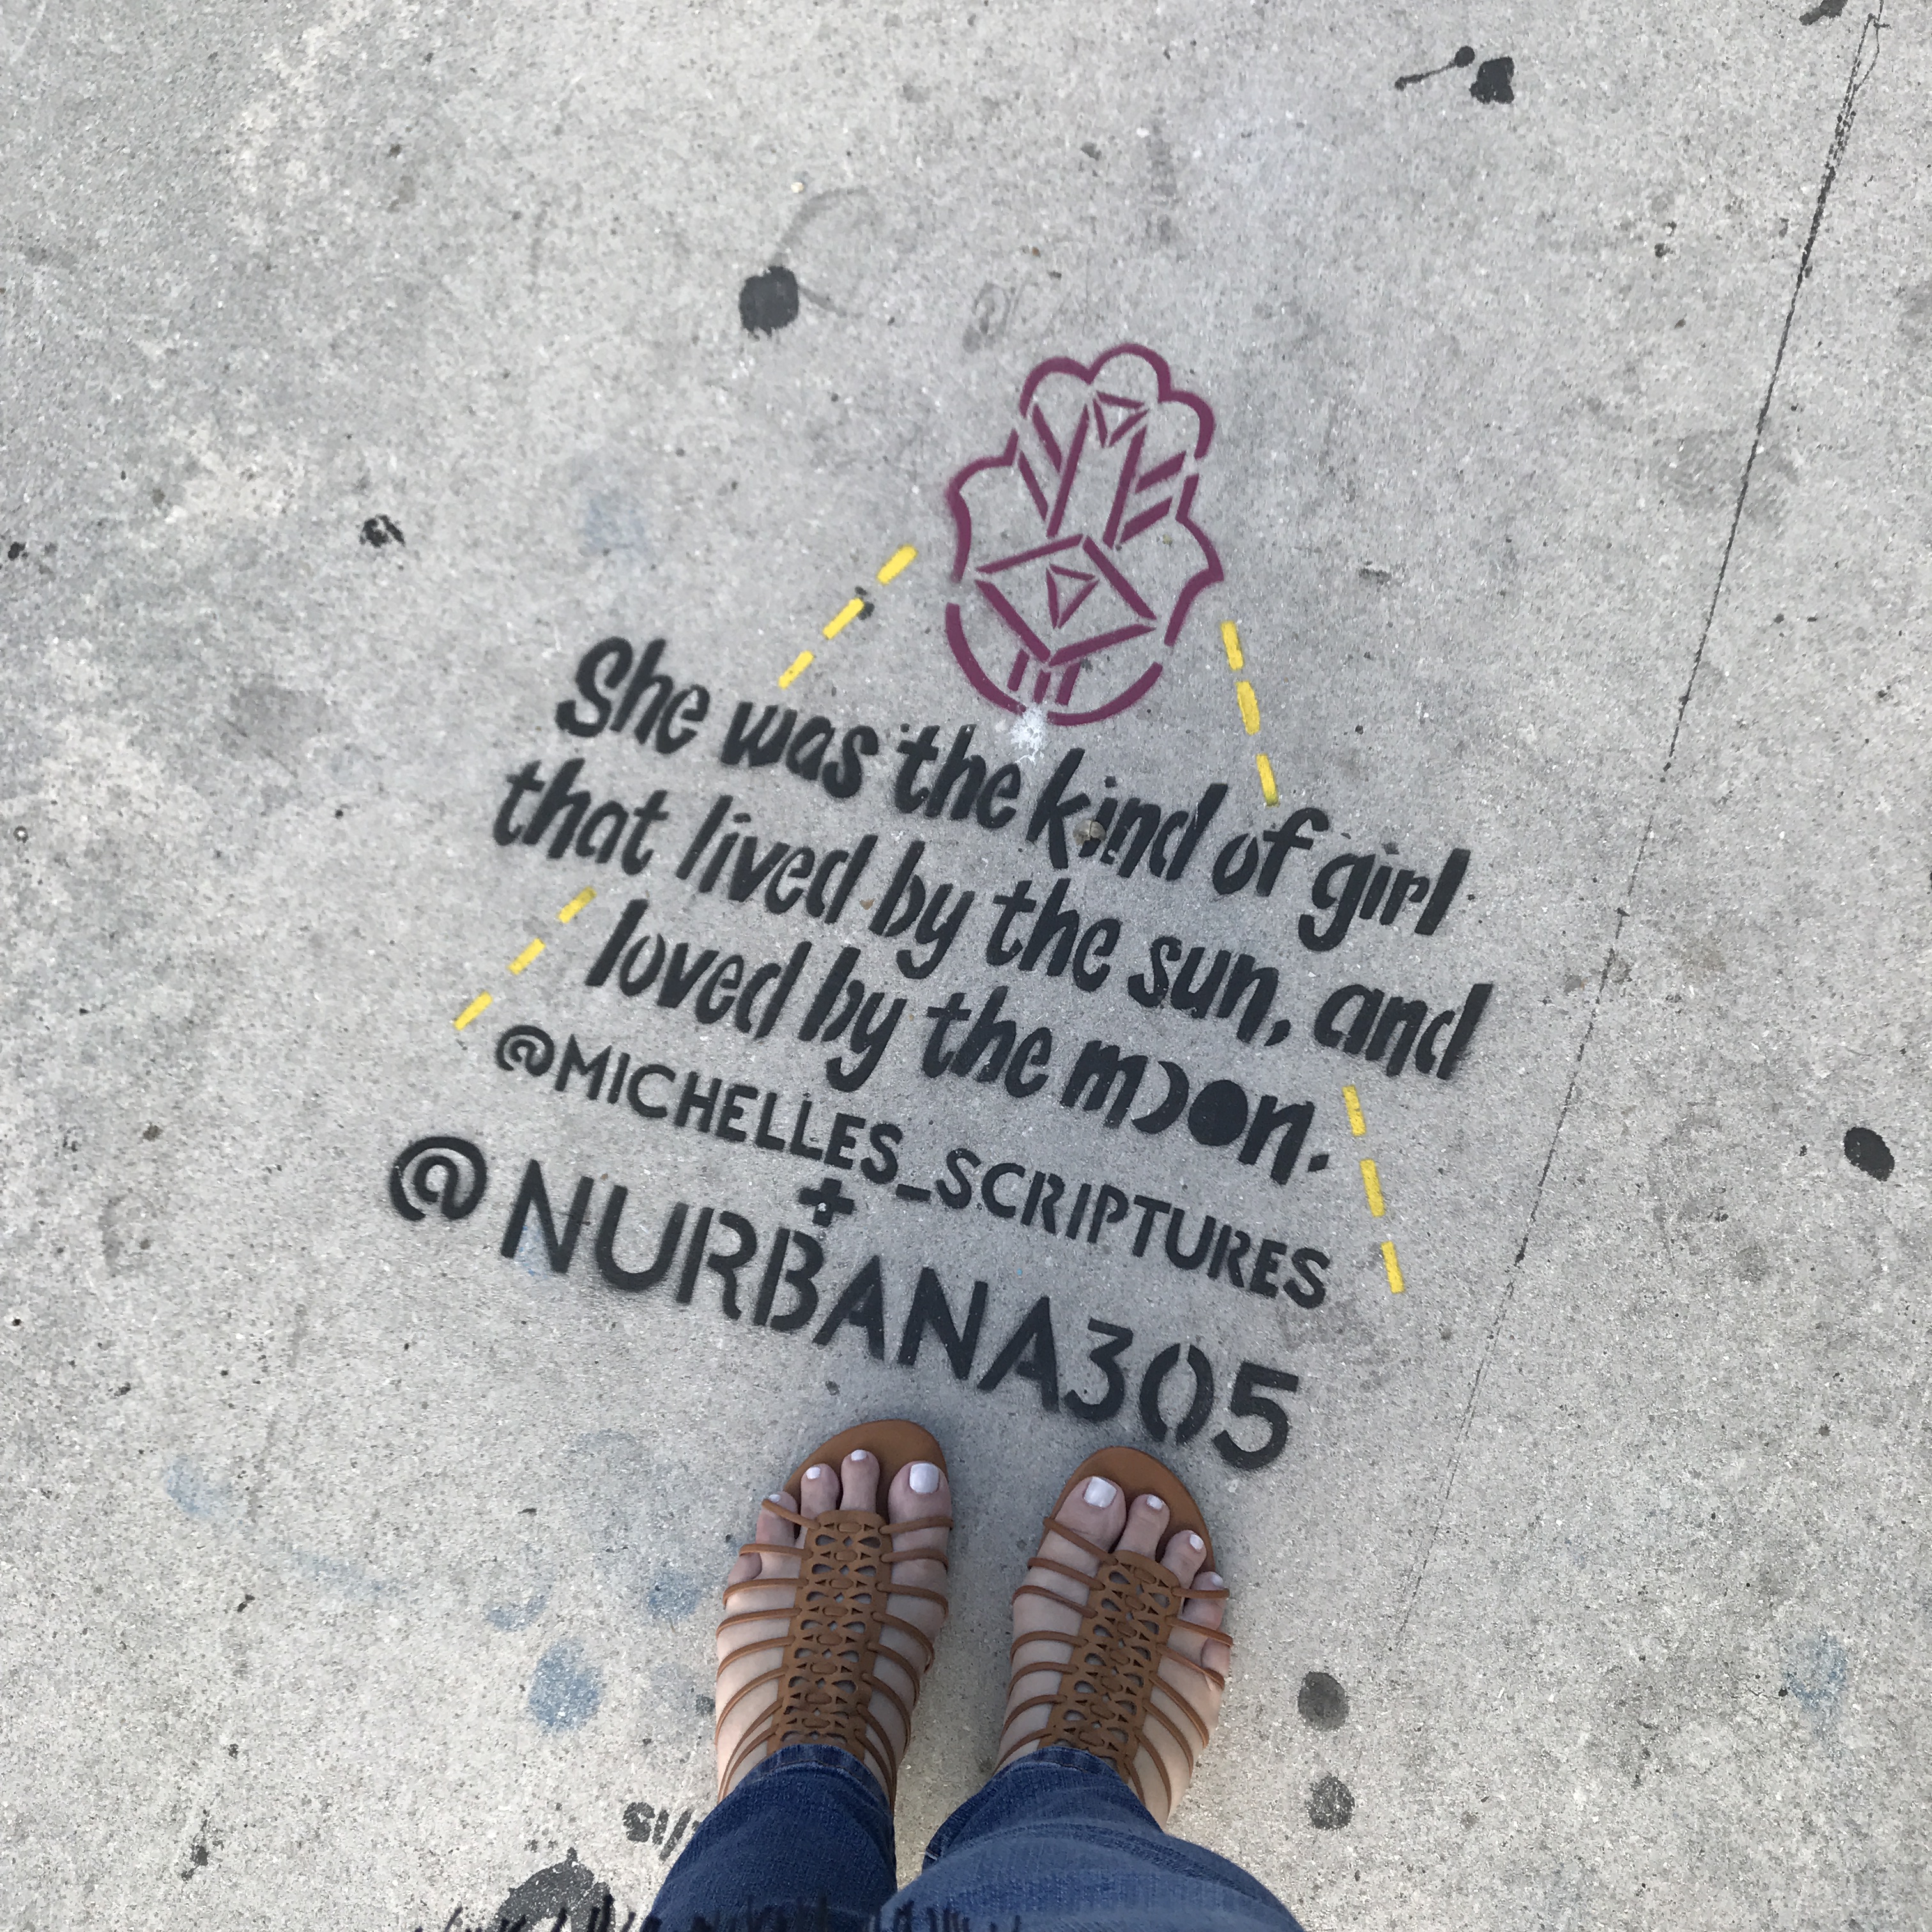 She was the kind of girl
that lived by the sun, and
loved by the moon.
@MICHELLES_SCRIPTURES
+
@NURBANA305